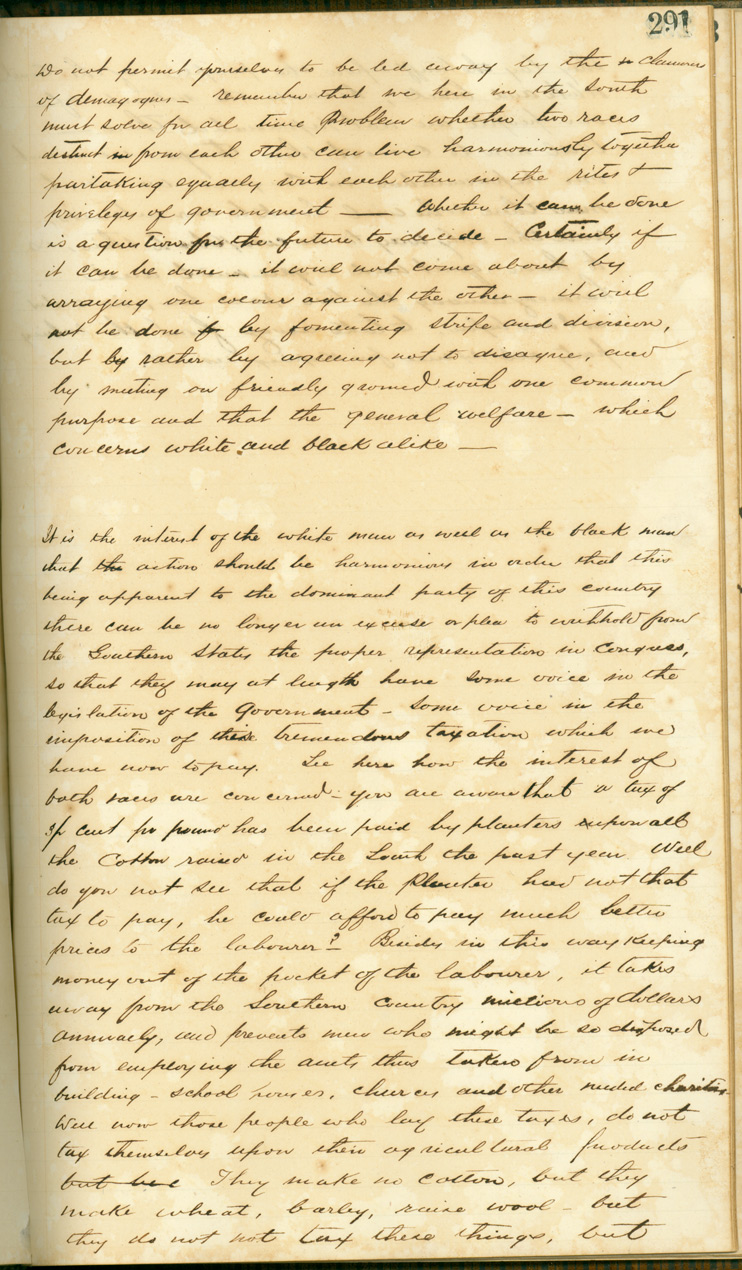 291
Do not permit yourselves to be led away by the clamours
of demagogues – remember that we here in the South
must solve for all time Problem whether two races
distinct from each other can live harmoniously together
partaking equally with each other in the rites &
privileges of government — Whether it can be done
is a question for the future to decide – Certainly if
it can be done – it will not come about by
arraying one colour against the other – it will
not be done if by fomenting strife and division,
but by rather by agreeing not to disagree, and
by meeting on friendly ground with one common
purpose and that the general welfare – which
concerns white and black alike —
It is the interest of the white man as well as the black man
that the action should be harmonious in order that this
being apparent to the dominant party of this country
there can be no longer an excuse or plea to withhold from
the Southern States the proper representation in Congress,
so that they may at length have some voice in the
legislation of the Government – some voice in the
imposition of these tremendous taxation which we
have now to pay. See here how the interest of
both races are concerned – you are aware that a tax of
cent pr pound has been paid by planters upon all
the Cotton raised in the South the past year Well
do you not see that if the Planter had not that
tax to pay, he could afford to pay much better
prices to the labourer? – Besides in this way keeping
money out of the pocket of the labourer, it takes
away from the Southern Country millions of dollars
annually, and prevents men who might be so disposed
from employing the amts thus taken from in
building – school houses, churces and other needed charities.
Well now those people who lay these taxes, do not
tax themselves upon their agricultural products
but They make no cotton, but they
make wheat, barley, raise wool – but
they do not not tax these things, but